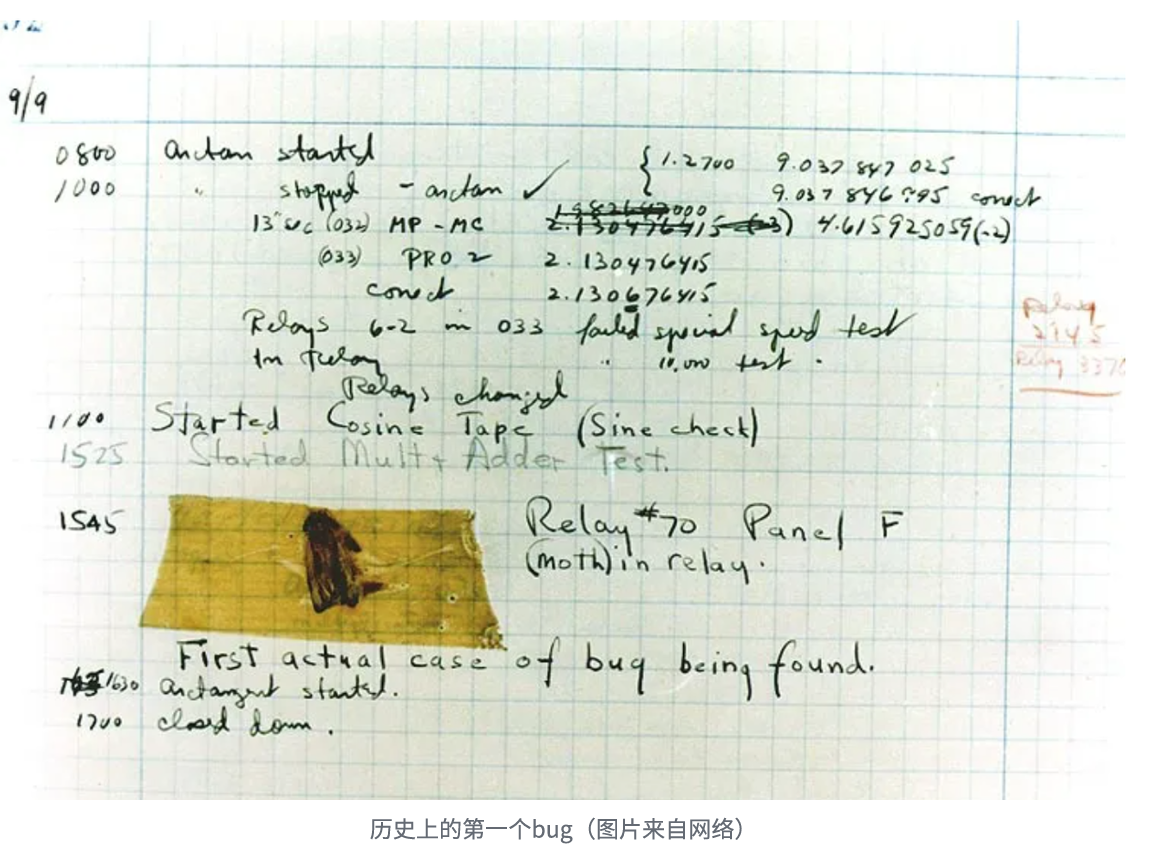 9/9
0800 arctan started { 1.2700 9.037 847 025
1000 " stopped - arctan ✓ 9.037 846 995 correct
13"uc (032) MP - MC 4.615925059(-2)
(033) PRO 2 2.130476415
correct 2.130676415
Relays 6-2 in 033 failed special speed test
In Relay " 10,000 test .
Relays changed
Relay
2145
Relay 3370
1100 Started Cosine Tape (Sine check)
1525 Started Mult+ Adder Test.
1545 Relay #70 Panel F
(moth) in relay.
First actual case of bug being found.
1630 arctangent started.
1700 closed down .
历史上的第一个bug（图片来自网络）